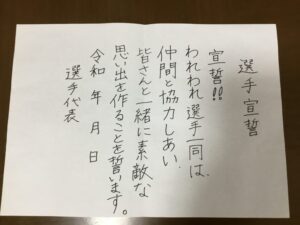 選手宣誓
宣誓!!
われわれ選手一同は、
仲間と協力しあい、
皆さんと一緒に素敵な
思い出を作ることを誓います。
令和 年 月 日
選手代表